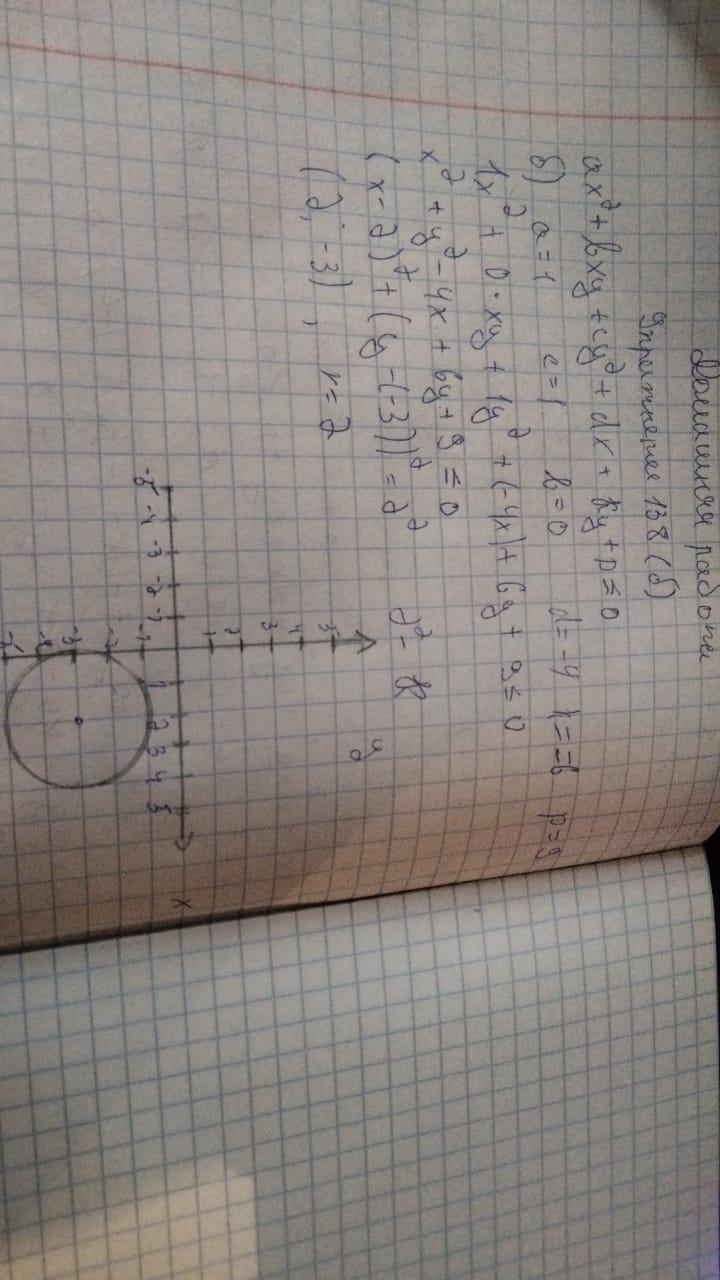 Домашняя работа
Упражнение 138 (б)
ax² + bxy + cy² + dx + ky + p = 0
б) a = 1 c = 1 b = 0 d = -4 k = 6 p = 9
1x² + 0·xy + 1y² + (-4x) + 6y + 9 = 0
x² + y² - 4x + 6y + 9 = 0
(x - 2)² + (y - (-3))² = 2²
(2; -3), r = 2
y
5
4
3
2
1
-5 -4 -3 -2 -1 1 2 3 4 5 x
-1
-2
-3
-4
-5